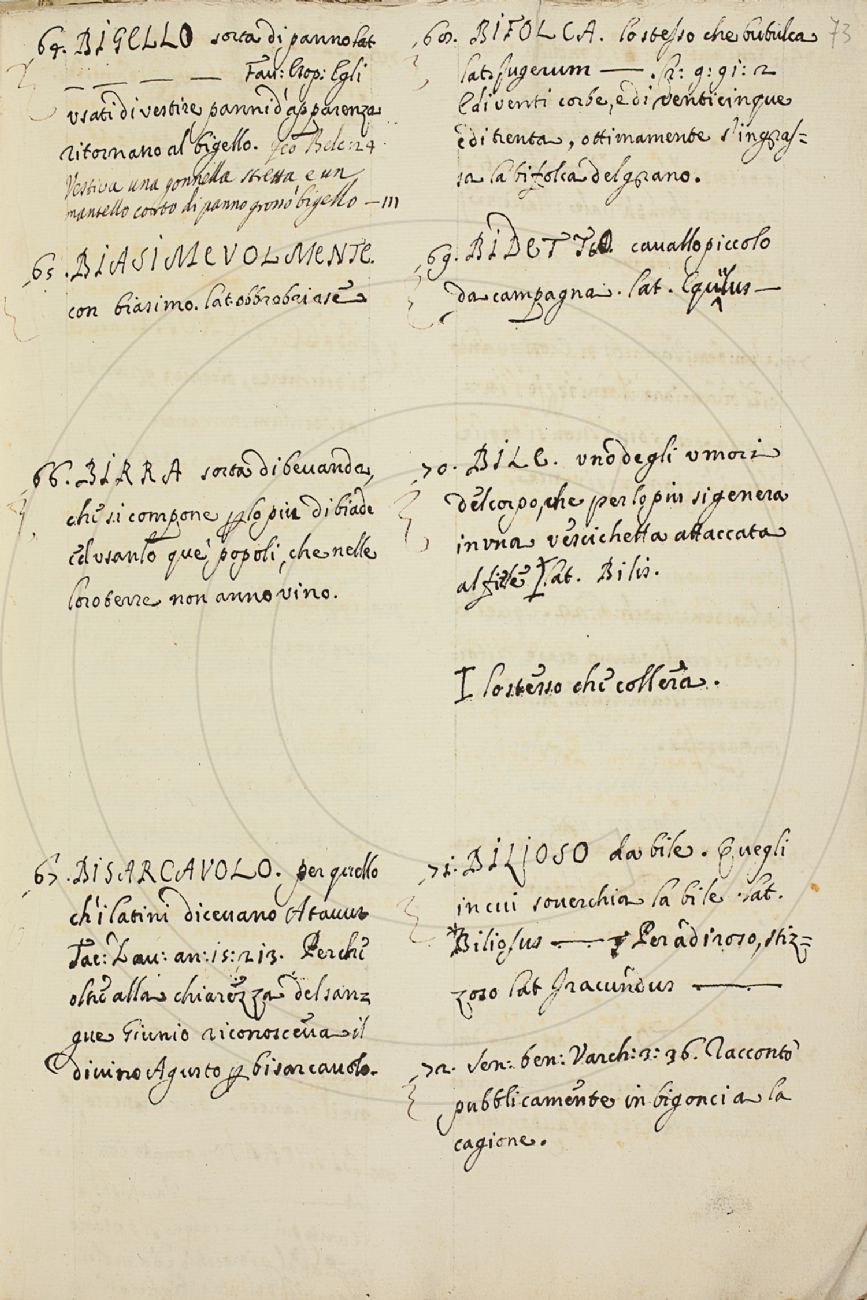 73
64. BIGELLO sorta di panno lat
— — — — Fav: Esop: Egli
usati di vestire panni d'apparenza
ritornano al bigello.
Vestiva una gonnella stretta e un
mantello corto di panno grosso bigello — 111
65. BIASIMEVOLMENTE.
con biasimo. lat obbrobriose
66. BIRRA sorta di bevanda,
che si compone p lo piu di biade
ed usanlo que' popoli, che nelle
loro terre non anno vino.
67. BISARCAVOLO. per quello
ch'i latini dicevano Atavus
Tac: Dav: an: 15: 213. Perche
oltre alla chiarezza del san=
gue Giunio riconosceva il
divino Agusto p bisarcavolo.
68. BIFOLCA. lo stesso che bubulca
lat. Jugerum —
E di venti corbe, e di venticinque
e di trenta, ottimamente s'ingras=
sa la bifolca del grano.
69. BIDETTO cavallo piccolo
da campagna. lat. Equulus —
70. BILE. uno degli umori
del corpo, che per lo piu si genera
in una vescichetta attaccata
al fiele lat. Bilis.
I lo stesso che collera.
71. BILIOSO da bile. Quegli
in cui soverchia la bile lat.
*Biliosus — Per adiroso, stiz=
zoso lat Iracundus —
72. Sen: ben: Varch: 3: 36. Racconto
pubblicamente in bigoncia la
cagione.